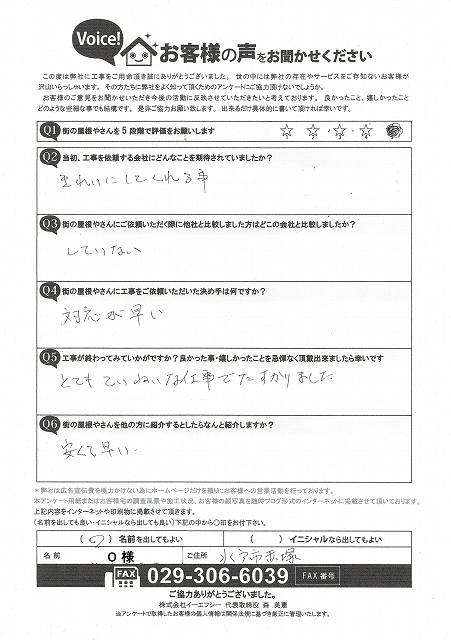 Voice!
お客様の声をお聞かせください
この度は弊社に工事をご用命頂き誠にありがとうございました。世の中には弊社の存在やサービスをご存知ないお客様が
沢山いらっしゃいます。その方たちに弊社をよく知って頂くためのアンケートにご協力頂けないでしょうか。
お客様のご意見をお聞かせいただき今後の活動に反映させていただきたいと考えております。良かったこと、嬉しかったこと
どのような些細な事でも結構です。是非ご協力お願い致します。出来るだけ具体的に書いて頂ければ幸いです。
Q1 街の屋根やさんを5段階で評価をお願いします ☆・☆・☆・☆
Q2 当初、工事を依頼する会社にどんなことを期待されていましたか?
きれいにしてくれる事
Q3 街の屋根やさんにご依頼いただく際に他社と比較しました方はどこの会社と比較しましたか?
していない
Q4 街の屋根やさんに工事をご依頼いただいた決め手は何ですか?
対応が早い
Q5 工事が終わってみていかがですか?良かった事・嬉しかったことを忌憚なく頂戴出来ましたら幸いです
とてもていねいな仕事でたすかりました
Q6 街の屋根やさんを他の方に紹介するとしたらなんと紹介しますか?
安くて早い.
*弊社は広告宣伝費を極力かけない為にホームページだけを頼りにお客様への営業活動を行っております。
本アンケート用紙またはお客様宅の調査風景や施工状況、お客様の顔写真を随時ブログ形式のインターネットに掲載させて頂いております。
上記内容をインターネットや印刷物に掲載させて頂きます。
(名前を出しても良い・イニシャルなら出しても良い)下記の中から〇印をお付け下さい。
( ○ )名前を出してもよい ( )イニシャルなら出してもよい
名前 O様 ご住所 水戸市赤塚
FAX 029-306-6039 FAX番号
ご協力ありがとうございました。
株式会社イーエフシー 代表取締役 森 英憲
当アンケートで取得したお客様の個人情報は関係法規に基づき厳正に管理いたします。